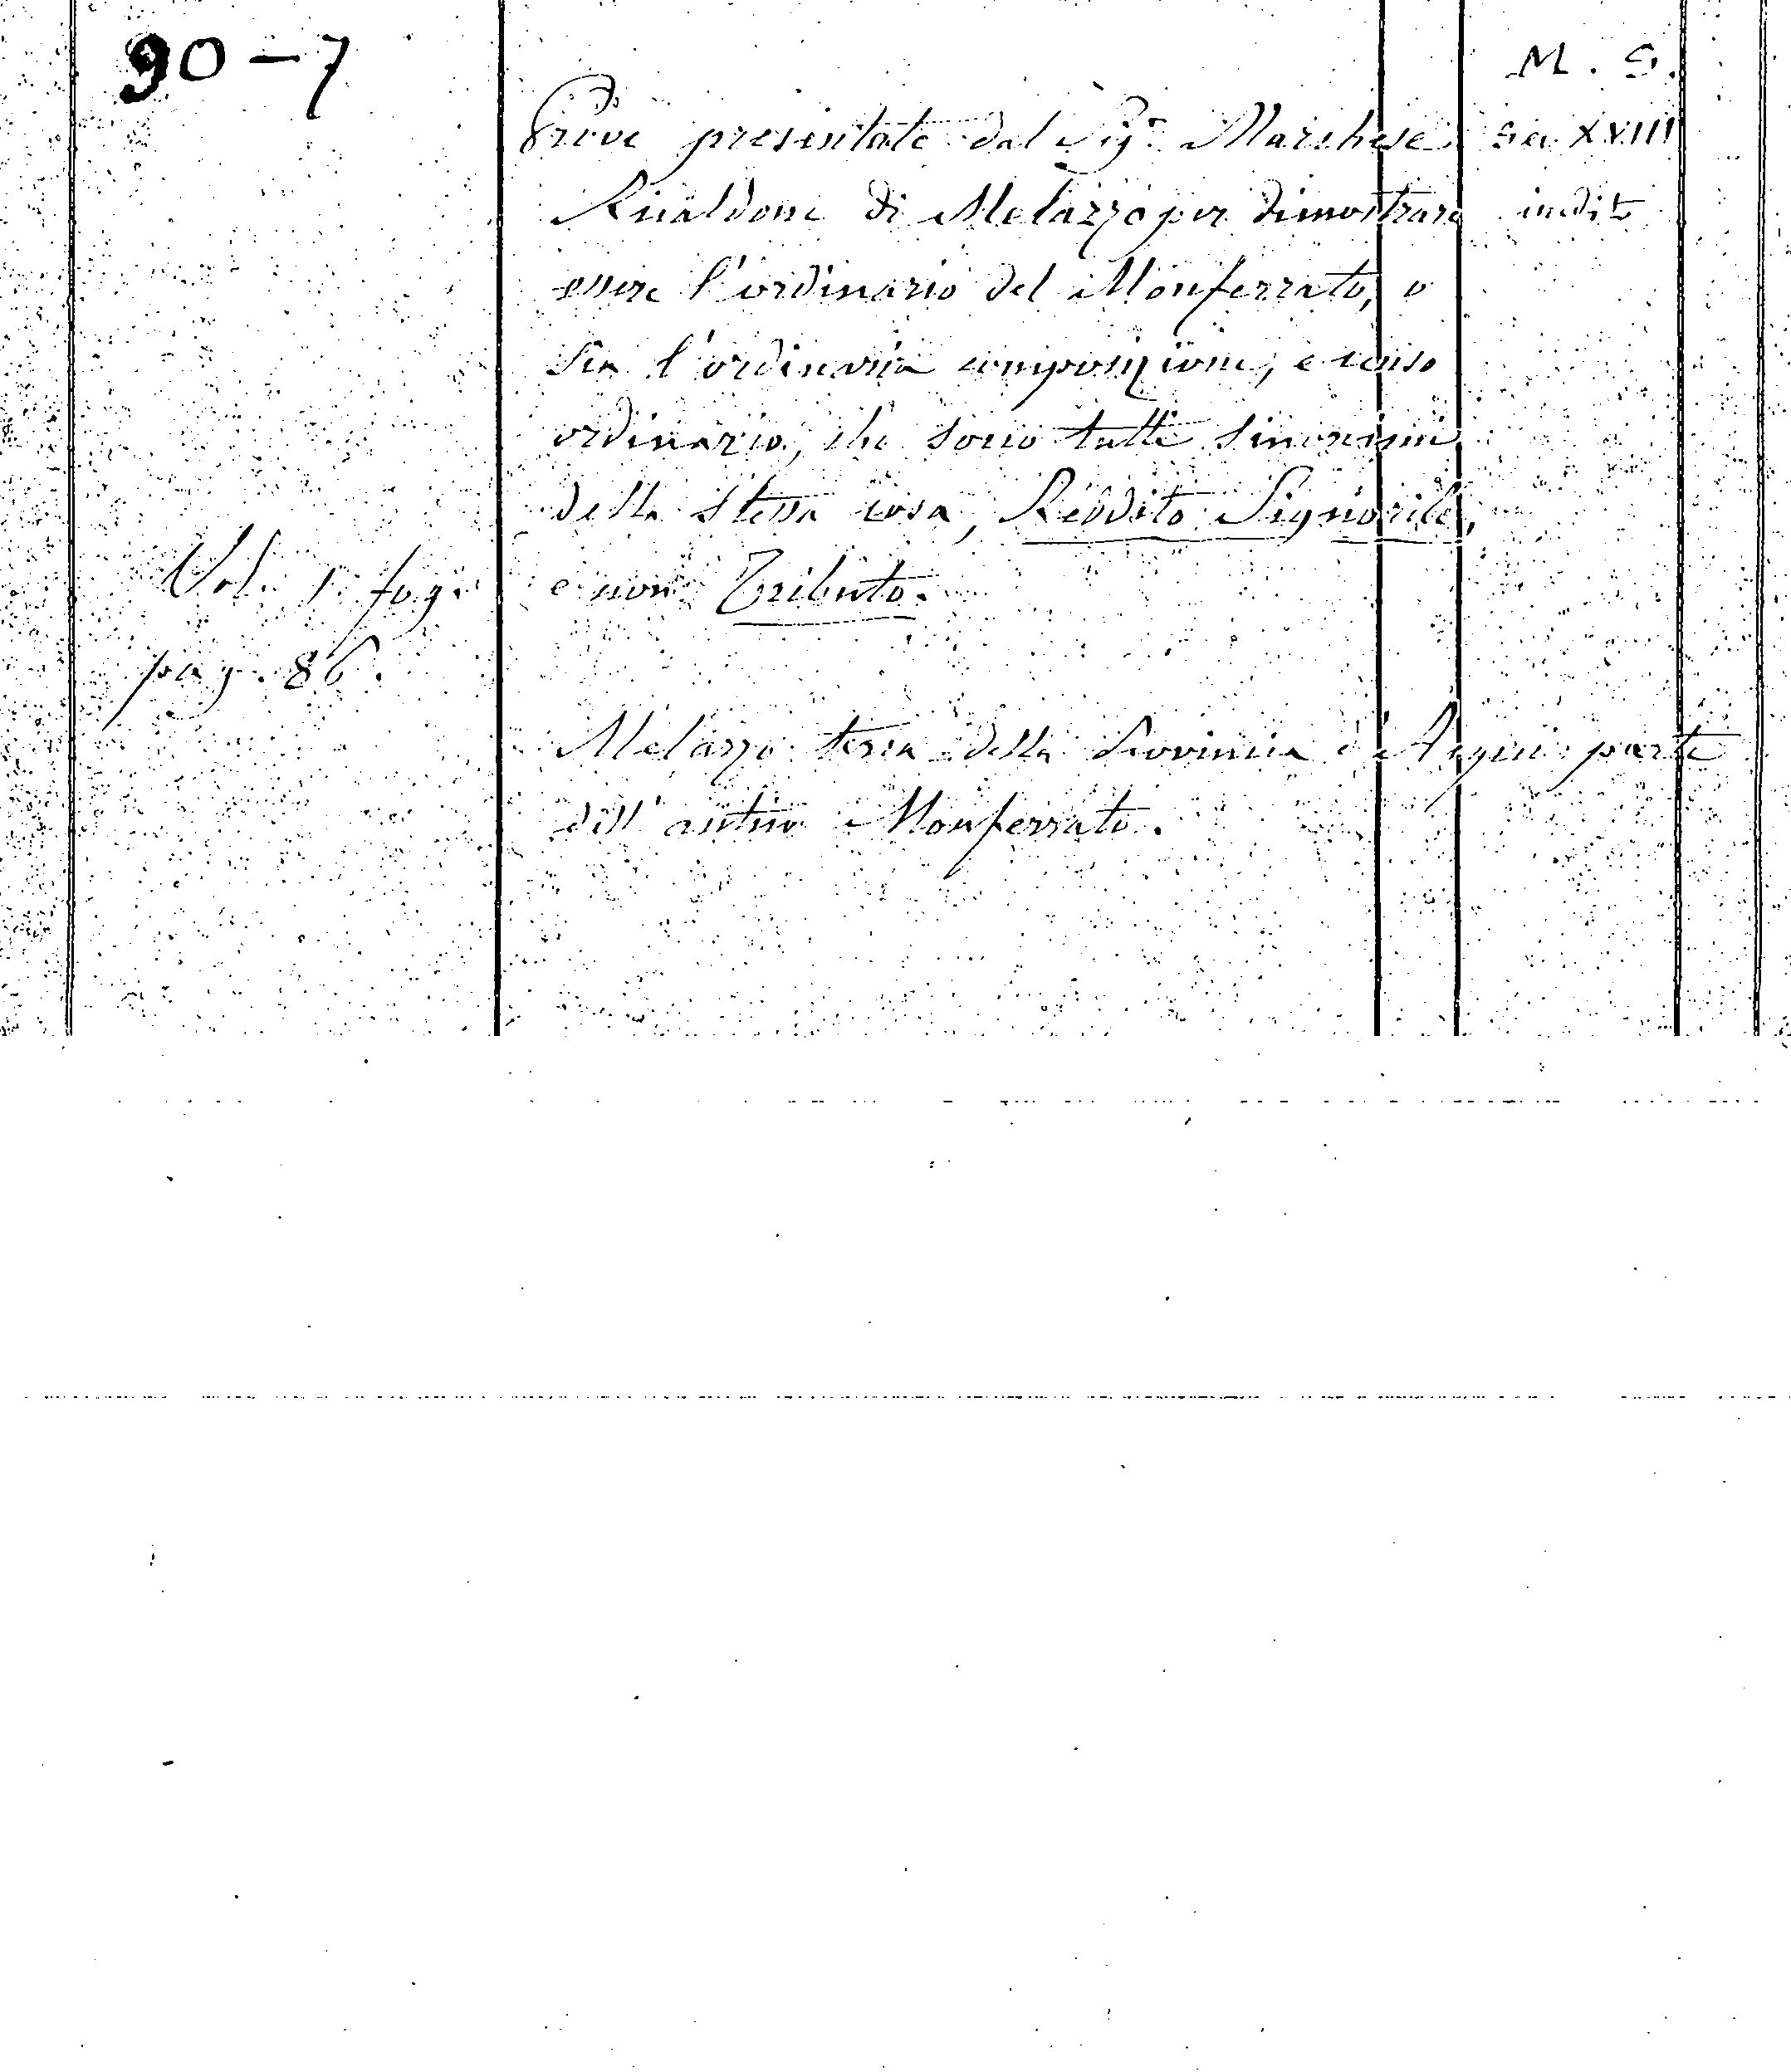 90-7
M. S.
Prove presentate dal Sigr Marchese
Sec XVIII
Rinaldone di Melazzo per dimostrare
inedito
essere l'ordinario del Monferrato, o
sia l'ordinaria composizione, e censo
ordinario, che sono tutti sinonimi
della stessa cosa, Reddito Signorile,
Vol. 1. fog.
e non Tributo.
pag. 86.
Melazzo terra della Provincia d'Acqui parte
dell'antico Monferrato.